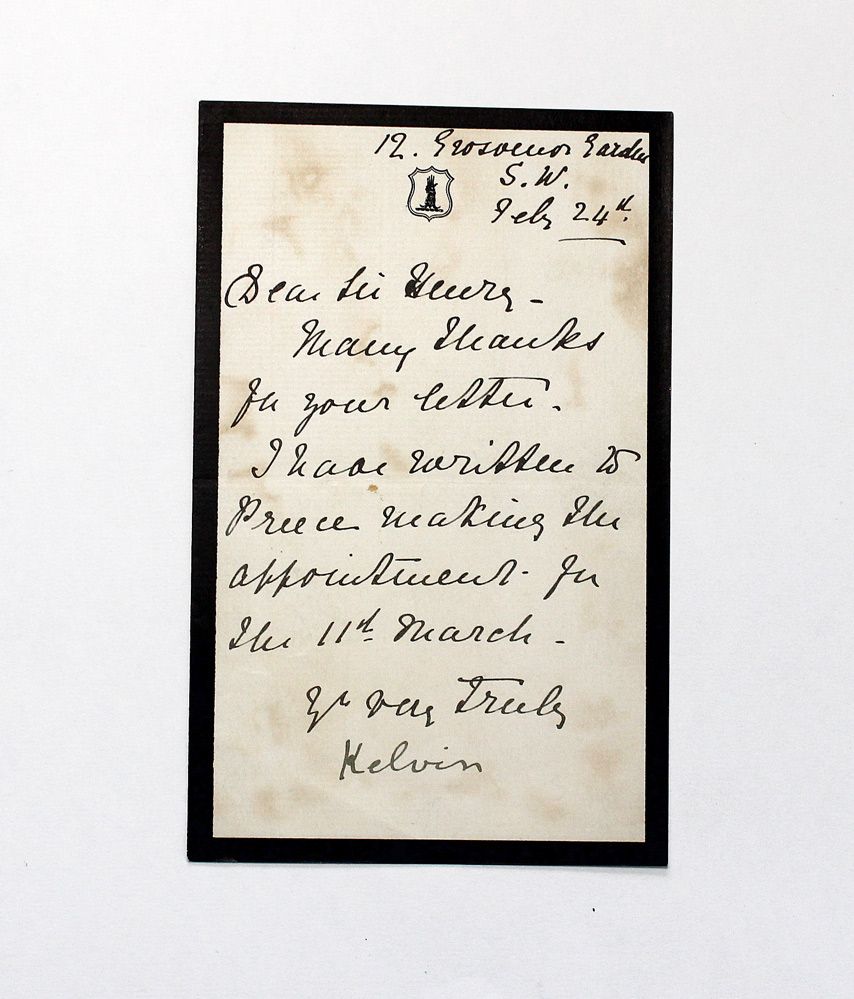 12. Grosvenor Gardens
S.W.
Feby 24th.
Dear Sir Henry -
Many thanks
for your letter.
I have written to
Preece making the
appointment for
the 11th March -
Yr very truly
Kelvin